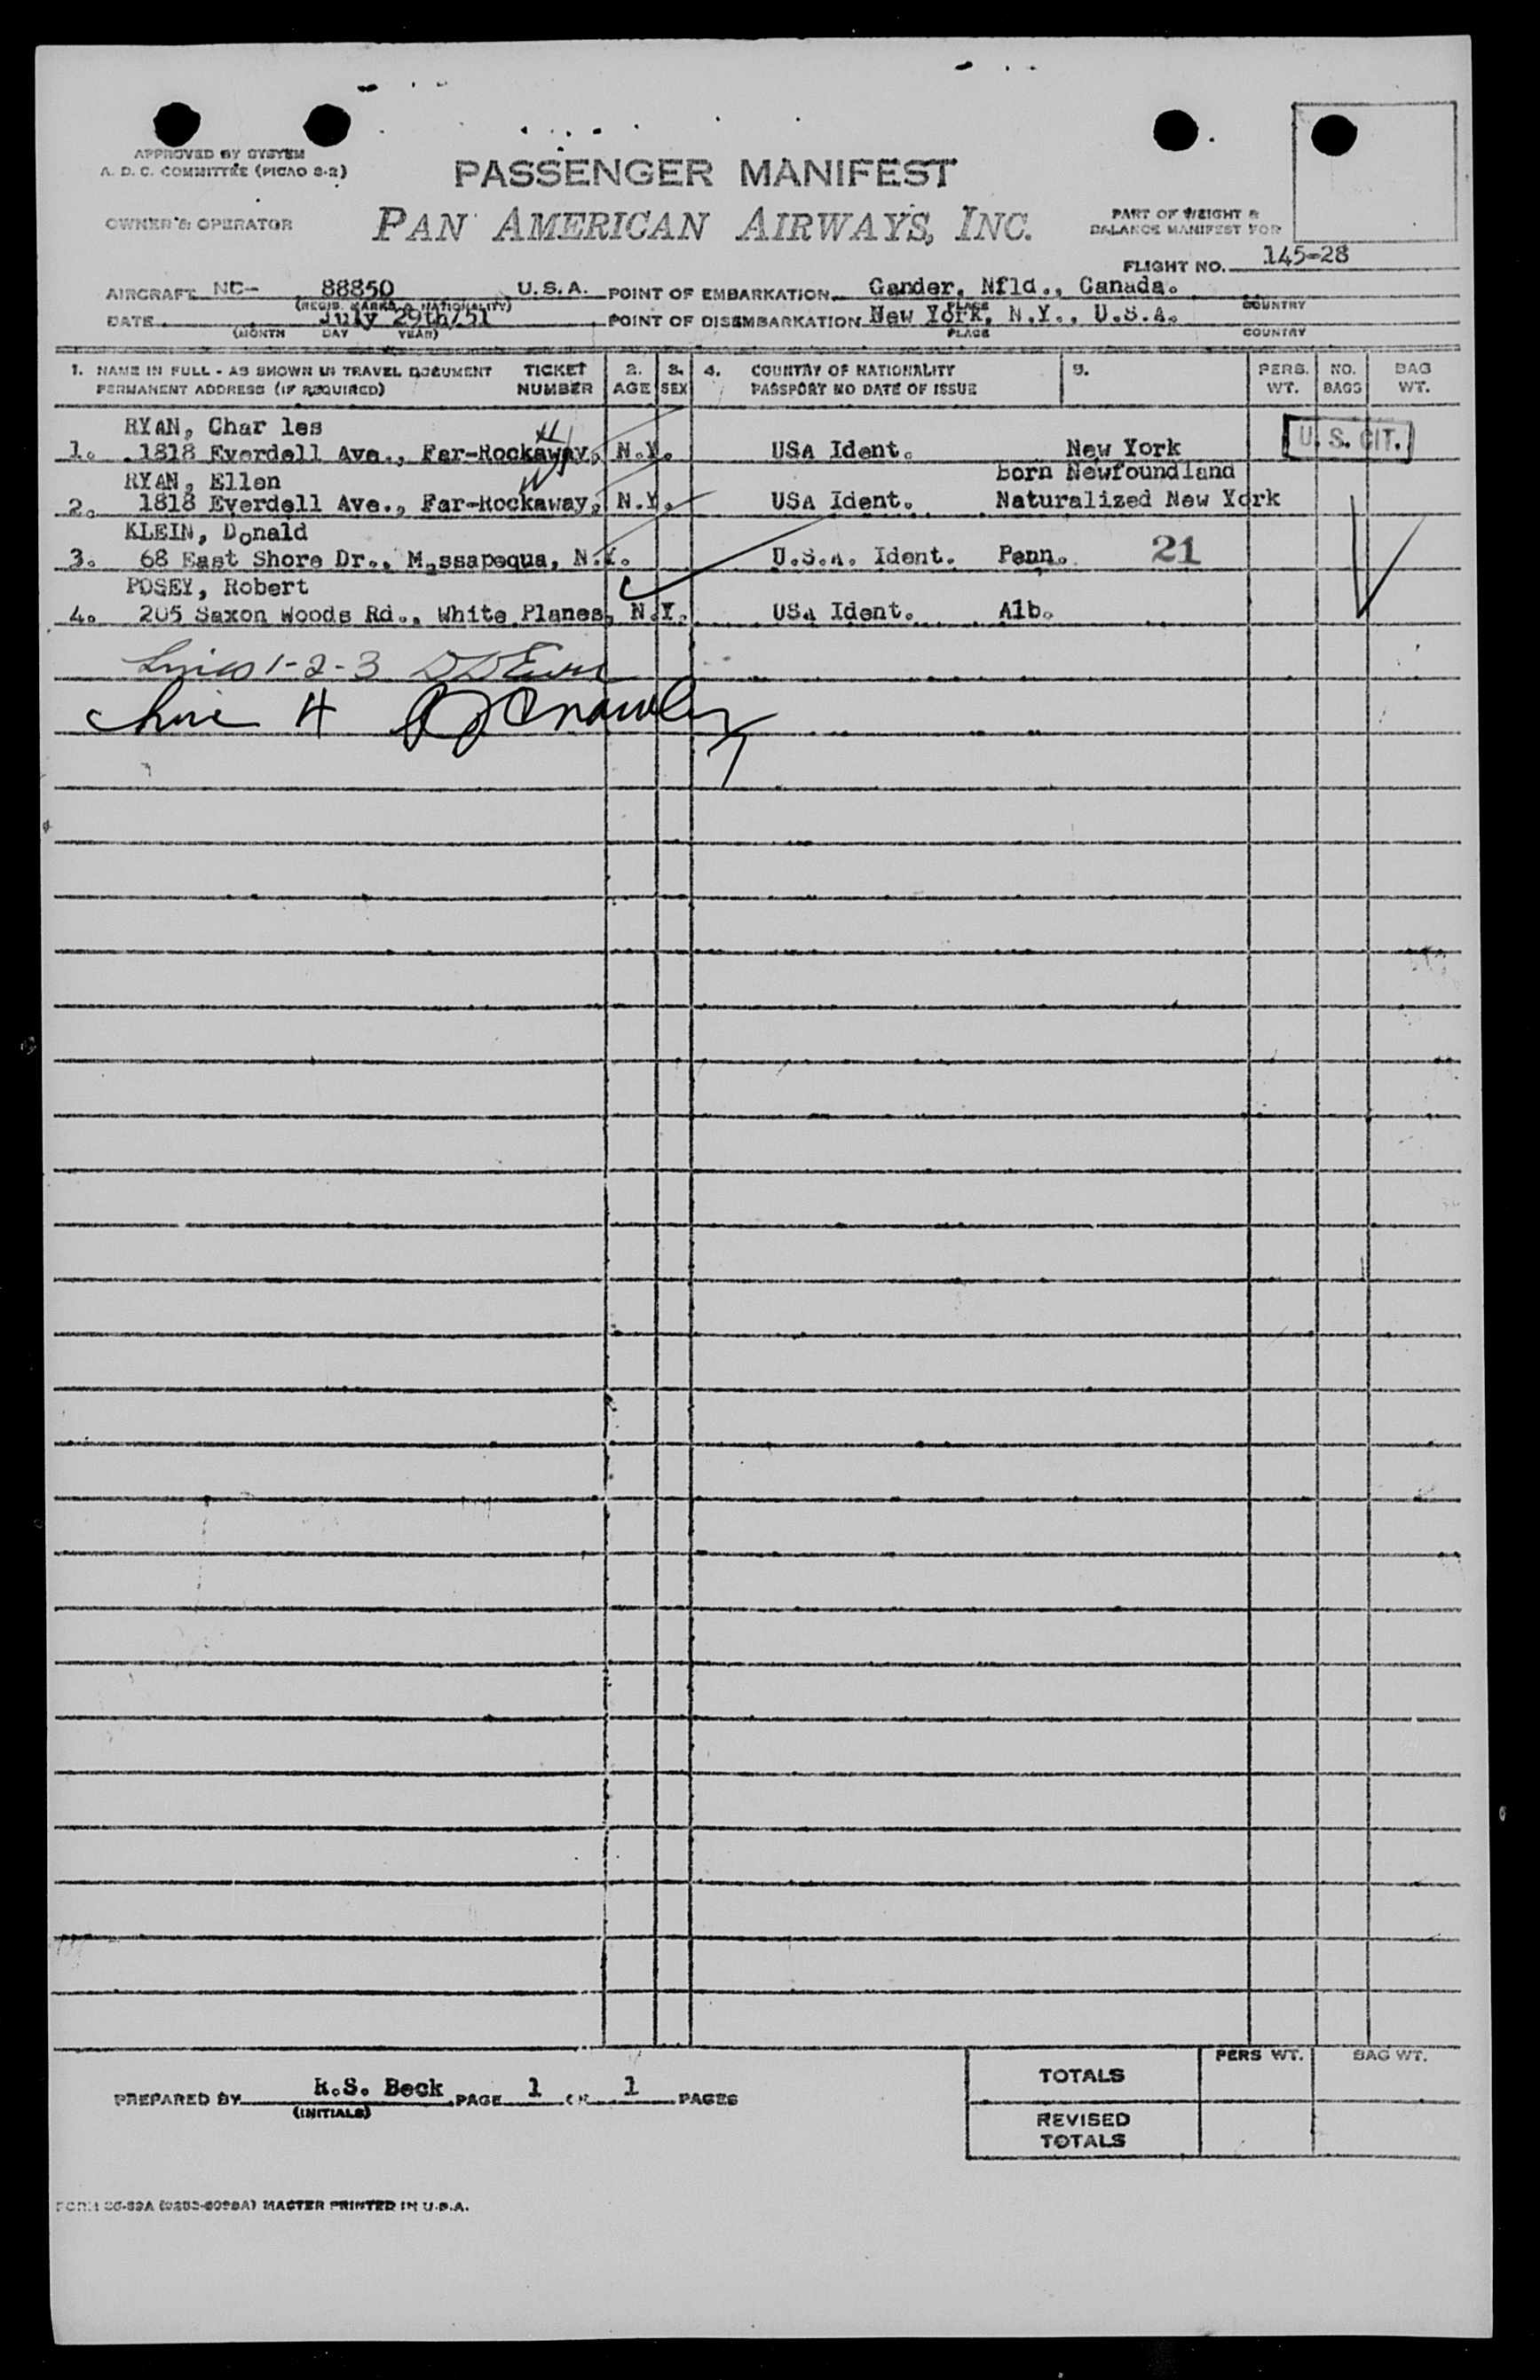 APPROVED BY SYSTEM
A. D. C. COMMITTEE (PICAO S-2)
PASSENGER MANIFEST
OWNER & OPERATOR
PAN AMERICAN AIRWAYS, INC.
PART OF WEIGHT &
BALANCE MANIFEST FOR
FLIGHT NO. 145-28
AIRCRAFT NC- 88850 U.S.A. POINT OF EMBARKATION Gander, Nfld., Canada.
(REGIS. MARKS & NATIONALITY) PLACE COUNTRY
DATE July 29th/51 POINT OF DISEMBARKATION New York, N.Y., U.S.A.
(MONTH DAY YEAR) PLACE COUNTRY
1. NAME IN FULL - AS SHOWN IN TRAVEL DOCUMENT TICKET 2. 3. 4. COUNTRY OF NATIONALITY 5. PERS. NO. BAG
PERMANENT ADDRESS (IF REQUIRED) NUMBER AGE SEX PASSPORT NO DATE OF ISSUE WT. BAGS WT.
RYAN, Char les
1. 1818 Everdell Ave., Far-Rockaway, N.Y. USA Ident. New York U. S. CIT.
RYAN, Ellen born Newfoundland
2. 1818 Everdell Ave., Far-Rockaway, N.Y. USA Ident. Naturalized New York
KLEIN, Donald
3. 68 East Shore Dr., Massapequa, N.Y. U.S.A. Ident. Penn. 21
POSEY, Robert
4. 205 Saxon Woods Rd., White Planes, N.Y. USA Ident. Alb.
Lines 1-2-3
Line 4
PREPARED BY R.S. Beck PAGE 1 OF 1 PAGES
(INITIALS)
PERS WT. BAG WT.
TOTALS
REVISED
TOTALS
MASTER PRINTED IN U.S.A.